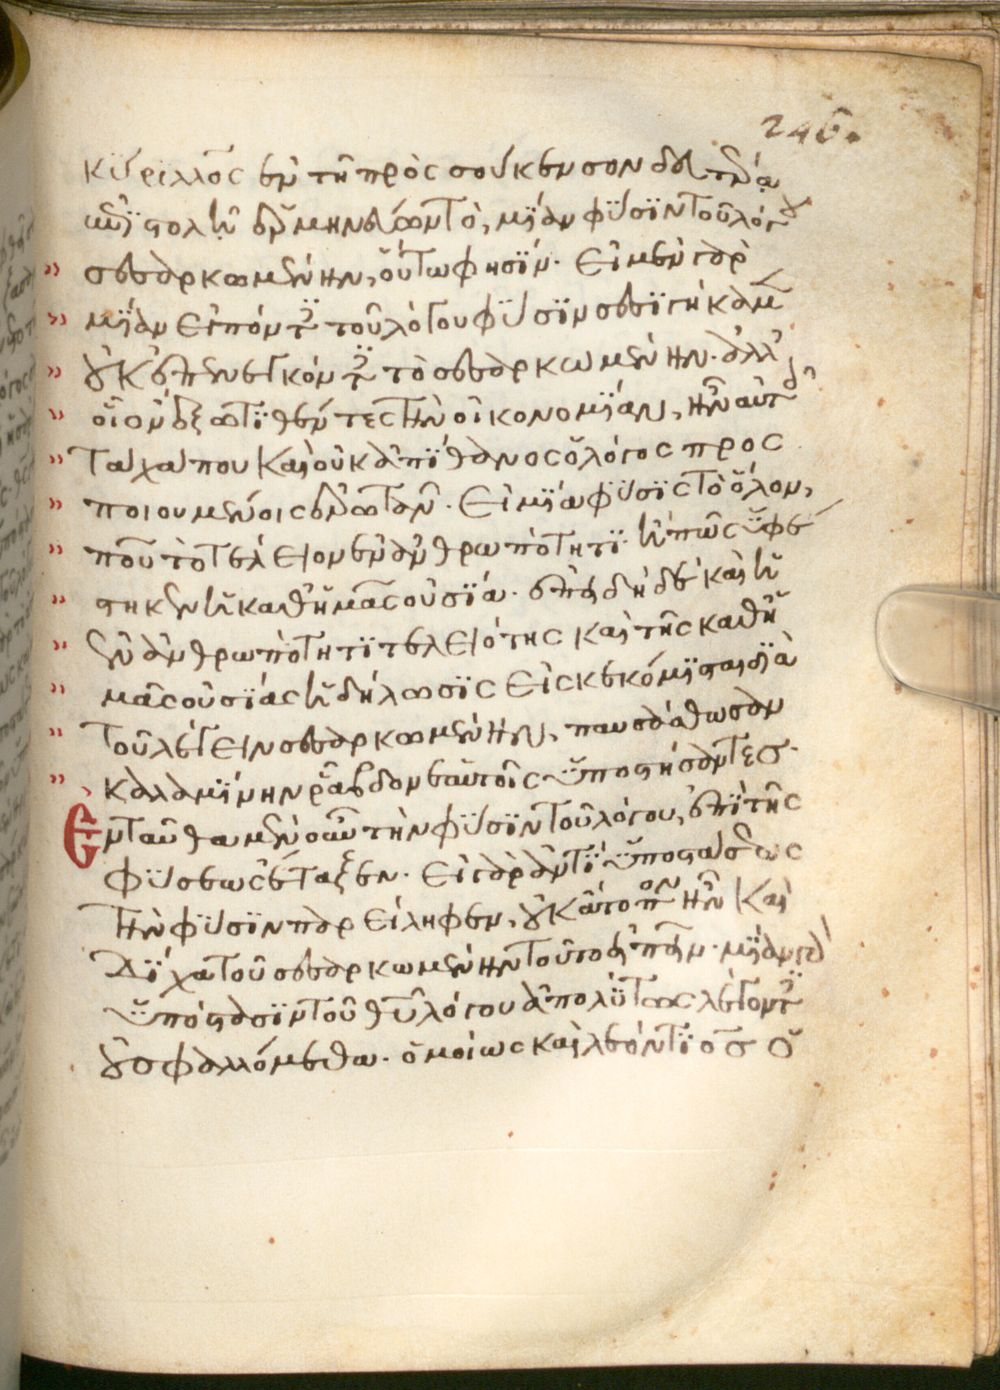 246.
κύριλλος ἐν τῇ πρὸς σούκενσον δευτέρᾳ
ἐπιστολῇ ἑρμηνεύων τὸ, μίαν φύσιν τοῦ λόγου
σεσαρκωμένην, οὕτω φησίν· Εἰ μὲν γὰρ
μίαν εἰπόντες τοῦ λόγου φύσιν σεσιγήκαμεν
οὐκ ἐπενεγκόντες τὸ σεσαρκωμένην· ἀλλ'
οἷον ἔξω τιθέντες τὴν οἰκονομίαν, ἦν αὐτοῖς
τάχα που καὶ οὐκ ἀπίθανος ὁ λόγος προσ
ποιουμένοις ἐρωτᾶν· Εἰ μία φύσις τὸ ὅλον,
ποῦ τὸ τέλειον ἐν ἀνθρωπότητι· ἢ πῶς ὑφέ
στηκεν ἡ καθ' ἡμᾶς οὐσία· ἐπειδὴ δὲ καὶ ἡ
ἐν ἀνθρωπότητι τελειότης καὶ τῆς καθ' ἡ
μᾶς οὐσίας ἡ δήλωσις εἰσκεκόμισται διὰ
τοῦ λέγειν σεσαρκωμένην, παυσάθωσαν
καλαμίνην ῥάβδον ἑαυτοῖς ὑποστήσαντες·
Ἐνταῦθα μὲν οὖν τὴν φύσιν τοῦ λόγου, ἐπὶ τῆς
φύσεως ἔταξεν· Εἰ γὰρ ἀντὶ ὑποστάσεως
τὴν φύσιν παρείληφεν, οὐκ ἄτοπον ἦν καὶ
δίχα τοῦ σεσαρκωμένην τοῦτο εἰπεῖν· μίαν γὰρ
ὑπόστασιν τοῦ θεοῦ λόγου ἀπολύτως λέγοντες
οὐ σφαλλόμεθα· ὁμοίως καὶ λεόντιος ὁ